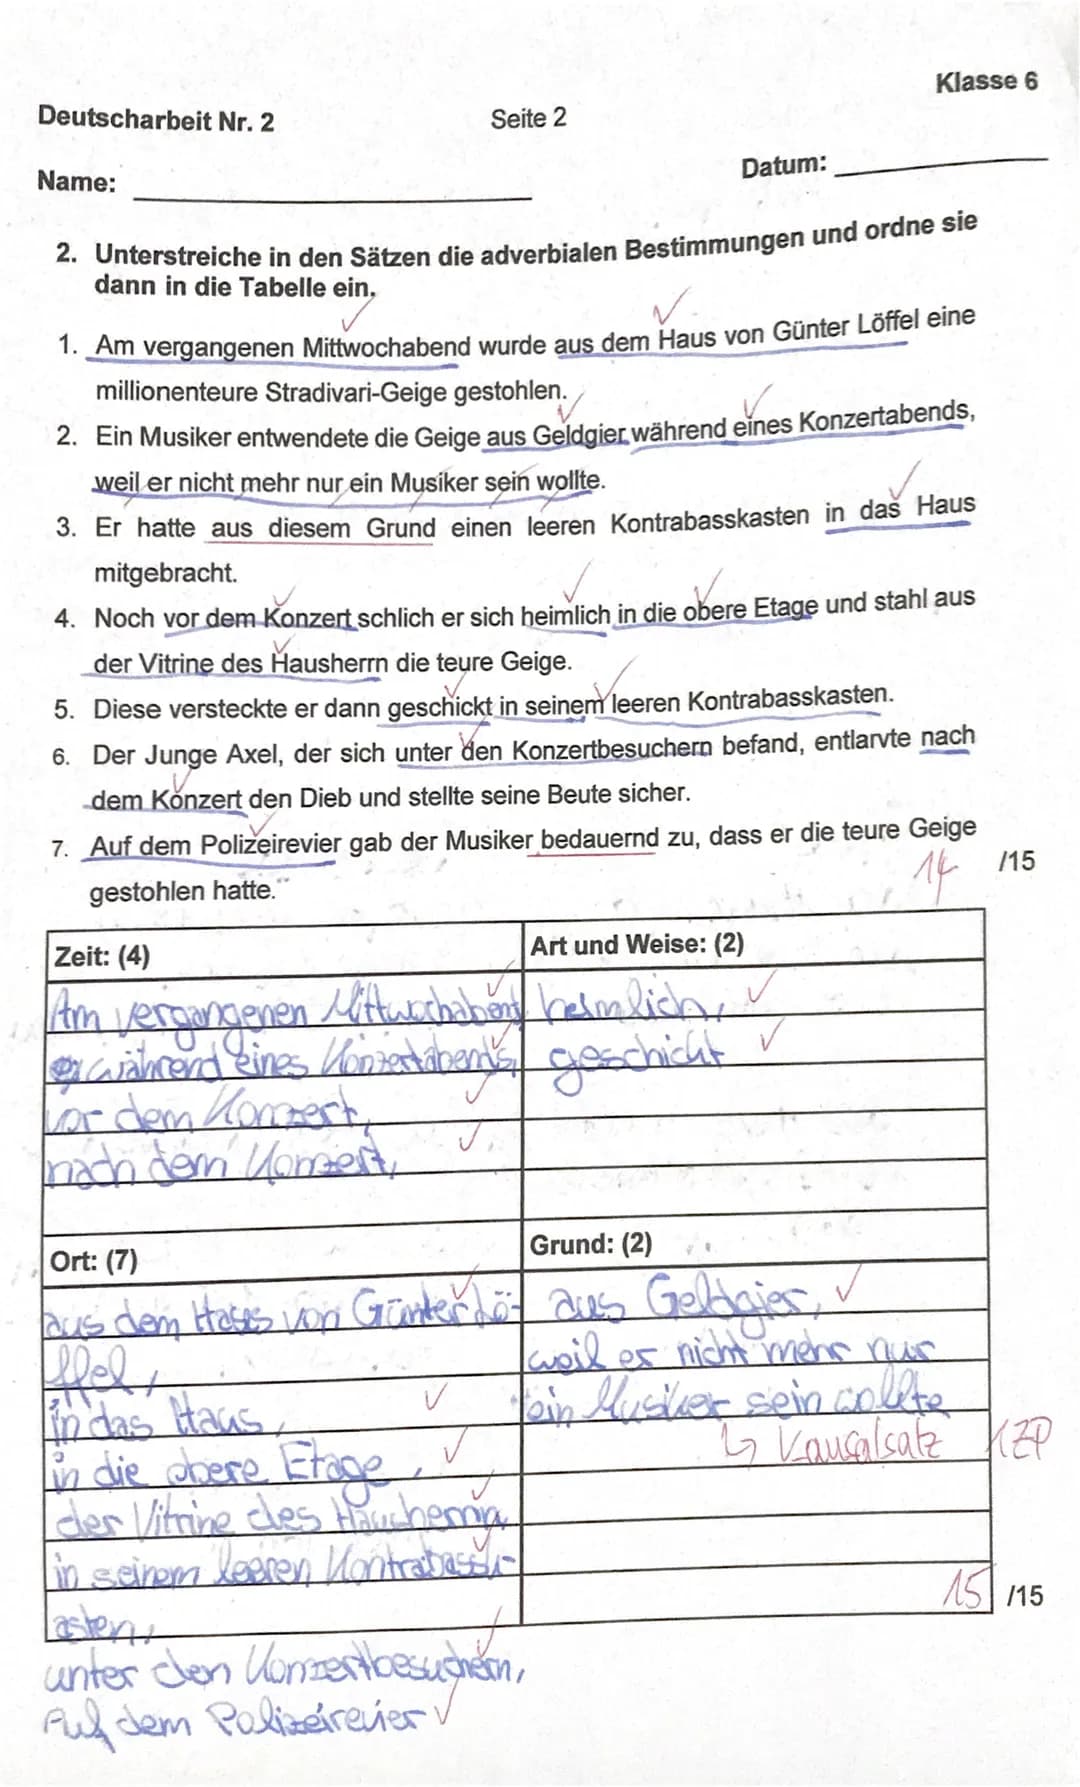 Klasse 6
Deutscharbeit Nr. 2 Seite 2
Name: Datum:
2. Unterstreiche in den Sätzen die adverbialen Bestimmungen und ordne sie
dann in die Tabelle ein.
1. Am vergangenen Mittwochabend wurde aus dem Haus von Günter Löffel eine
millionenteure Stradivari-Geige gestohlen.
2. Ein Musiker entwendete die Geige aus Geldgier während eines Konzertabends,
weil er nicht mehr nur ein Musiker sein wollte.
3. Er hatte aus diesem Grund einen leeren Kontrabasskasten in das Haus
mitgebracht.
4. Noch vor dem Konzert schlich er sich heimlich in die obere Etage und stahl aus
der Vitrine des Hausherrn die teure Geige.
5. Diese versteckte er dann geschickt in seinem leeren Kontrabasskasten.
6. Der Junge Axel, der sich unter den Konzertbesuchern befand, entlarvte nach
dem Konzert den Dieb und stellte seine Beute sicher.
7. Auf dem Polizeirevier gab der Musiker bedauernd zu, dass er die teure Geige
gestohlen hatte.
14 /15
Zeit: (4) Art und Weise: (2)
Am vergangenen Mittwochabend heimlich,
während eines Konzertabends, geschickt
vor dem Konzert,
nach dem Konzert,
Ort: (7) Grund: (2)
aus dem Haus von Günter Lö- aus Geldgier,
ffel, weil er nicht mehr nur
in das Haus, ein Musiker sein wollte
in die obere Etage, ↳ Kausalsatz 1ZP
der Vitrine des Hausherrn,
in seinem leeren Kontrabassk-
asten, 15 /15
unter den Konzertbesuchern,
Auf dem Polizeirevier